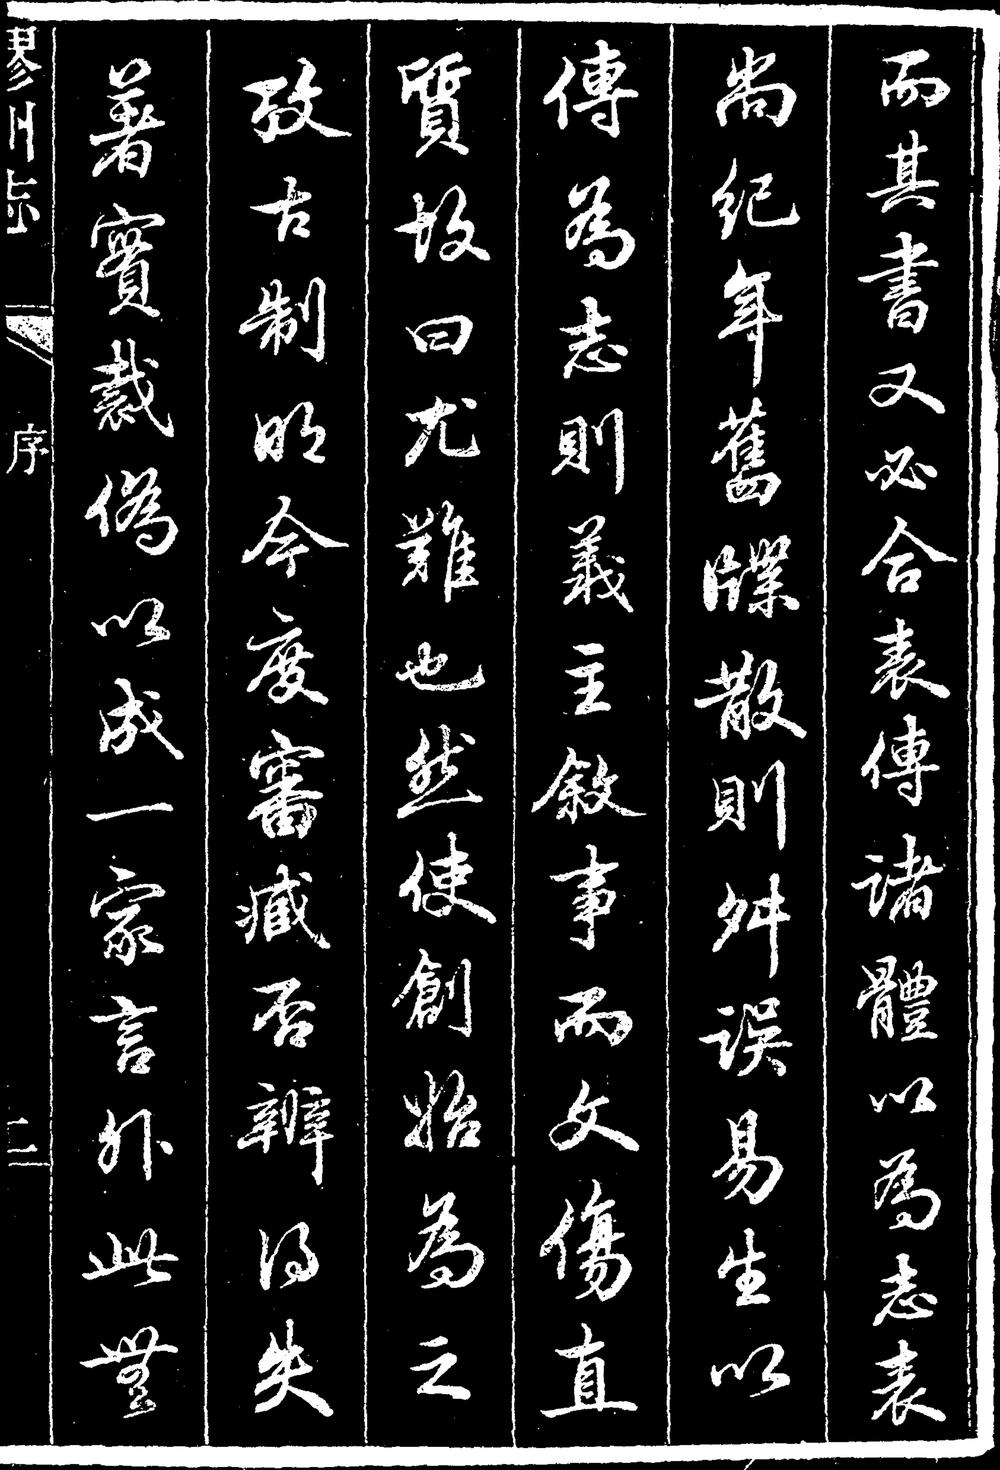 而其書又必合表傳諸體以為志表
尚紀年舊牒散則舛誤易生以
傳為志則義主敘事而文傷直
質故曰尤難也然使創始為之
攷古制明今度審臧否辨得失
著實裁偽以成一家言外此豈
膠州志
序
二